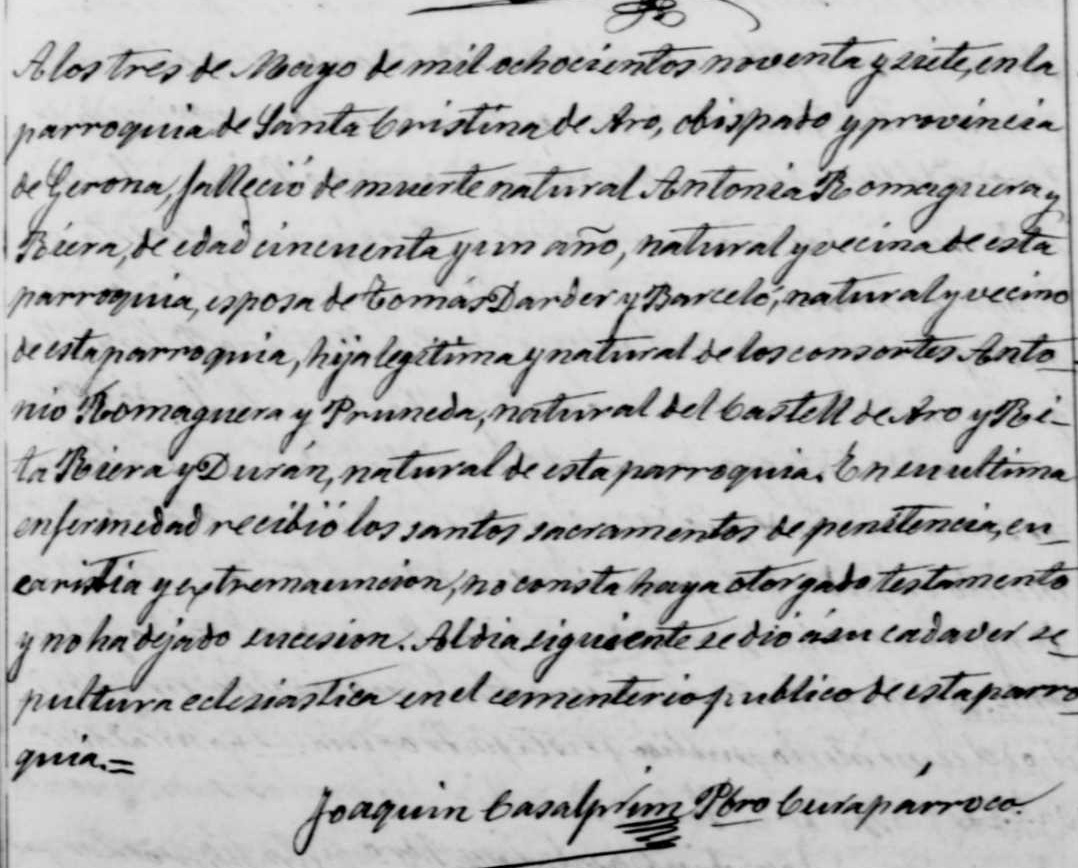 A los tres de Mayo de mil ochocientos noventa y siete, en la
parroquia de Santa Cristina de Aro, obispado y provincia
de Gerona, falleció de muerte natural Antonia Romaguera y
Riera, de edad cincuenta y un año, natural y vecina de esta
parroquia, esposa de Tomás Darder y Barceló, natural y vecino
de esta parroquia, hija legitima y natural de los consortes Anto-
nio Romaguera y Pruneda, natural del Castell de Aro y Ri-
ta Riera y Durán, natural de esta parroquia. En su ultima
enfermedad recibió los santos sacramentos de penitencia, eu-
caristia y extremauncion, no consta haya otorgado testamento
y no ha dejado sucesion. Al dia siguiente se dió á su cadaver se-
pultura eclesiastica en el cementerio publico de esta parro-
quia.=
Joaquin Casalprim Pbro Cura párroco.